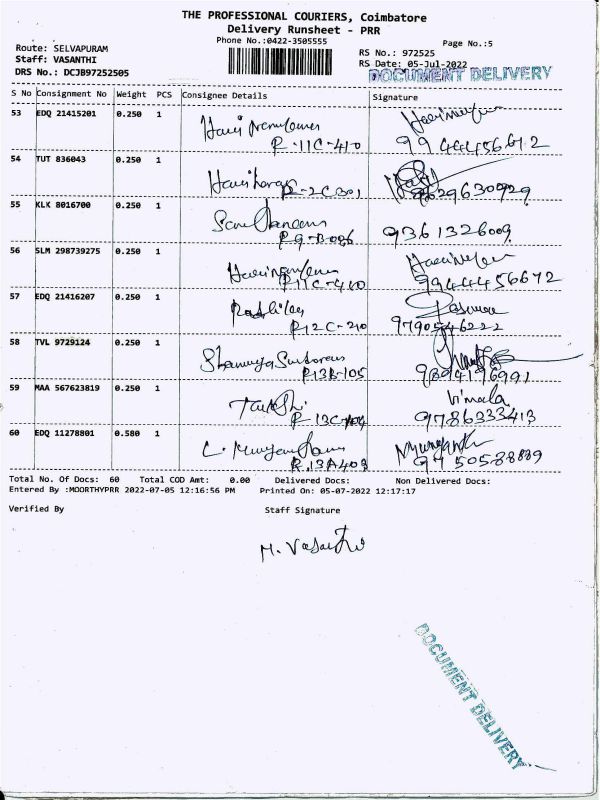 THE PROFESSIONAL COURIERS, Coimbatore
Delivery Runsheet - PRR
Phone No.:0422-3505555
Page No.:5
Route: SELVAPURAM
Staff: VASANTHI
DRS No.: DCJB97252505
RS No.: 972525
RS Date: 05-Jul-2022
DOCUMENT DELIVERY
S No Consignment No Weight PCS Consignee Details Signature
53 EDQ 21415201 0.250 1
R-11C-410 9944456672
54 TUT 836043 0.250 1
R-2C301 9629630929
55 KLK 8016700 0.250 1
R9-B-086 9361326009
56 SLM 298739275 0.250 1
R11C-410 9944456672
57 EDQ 21416207 0.250 1
R12C-210 9790546222
58 TVL 9729124 0.250 1
R13B-105 9894196991
59 MAA 567623819 0.250 1 Vimala
R-13C-104 9786333413
60 EDQ 11278801 0.580 1
R.13A403 9750588889
Total No. Of Docs: 60 Total COD Amt: 0.00 Delivered Docs: Non Delivered Docs:
Entered By :MOORTHYPRR 2022-07-05 12:16:56 PM Printed On: 05-07-2022 12:17:17
Verified By Staff Signature
M. Vasanthi
DOCUMENT DELIVERY